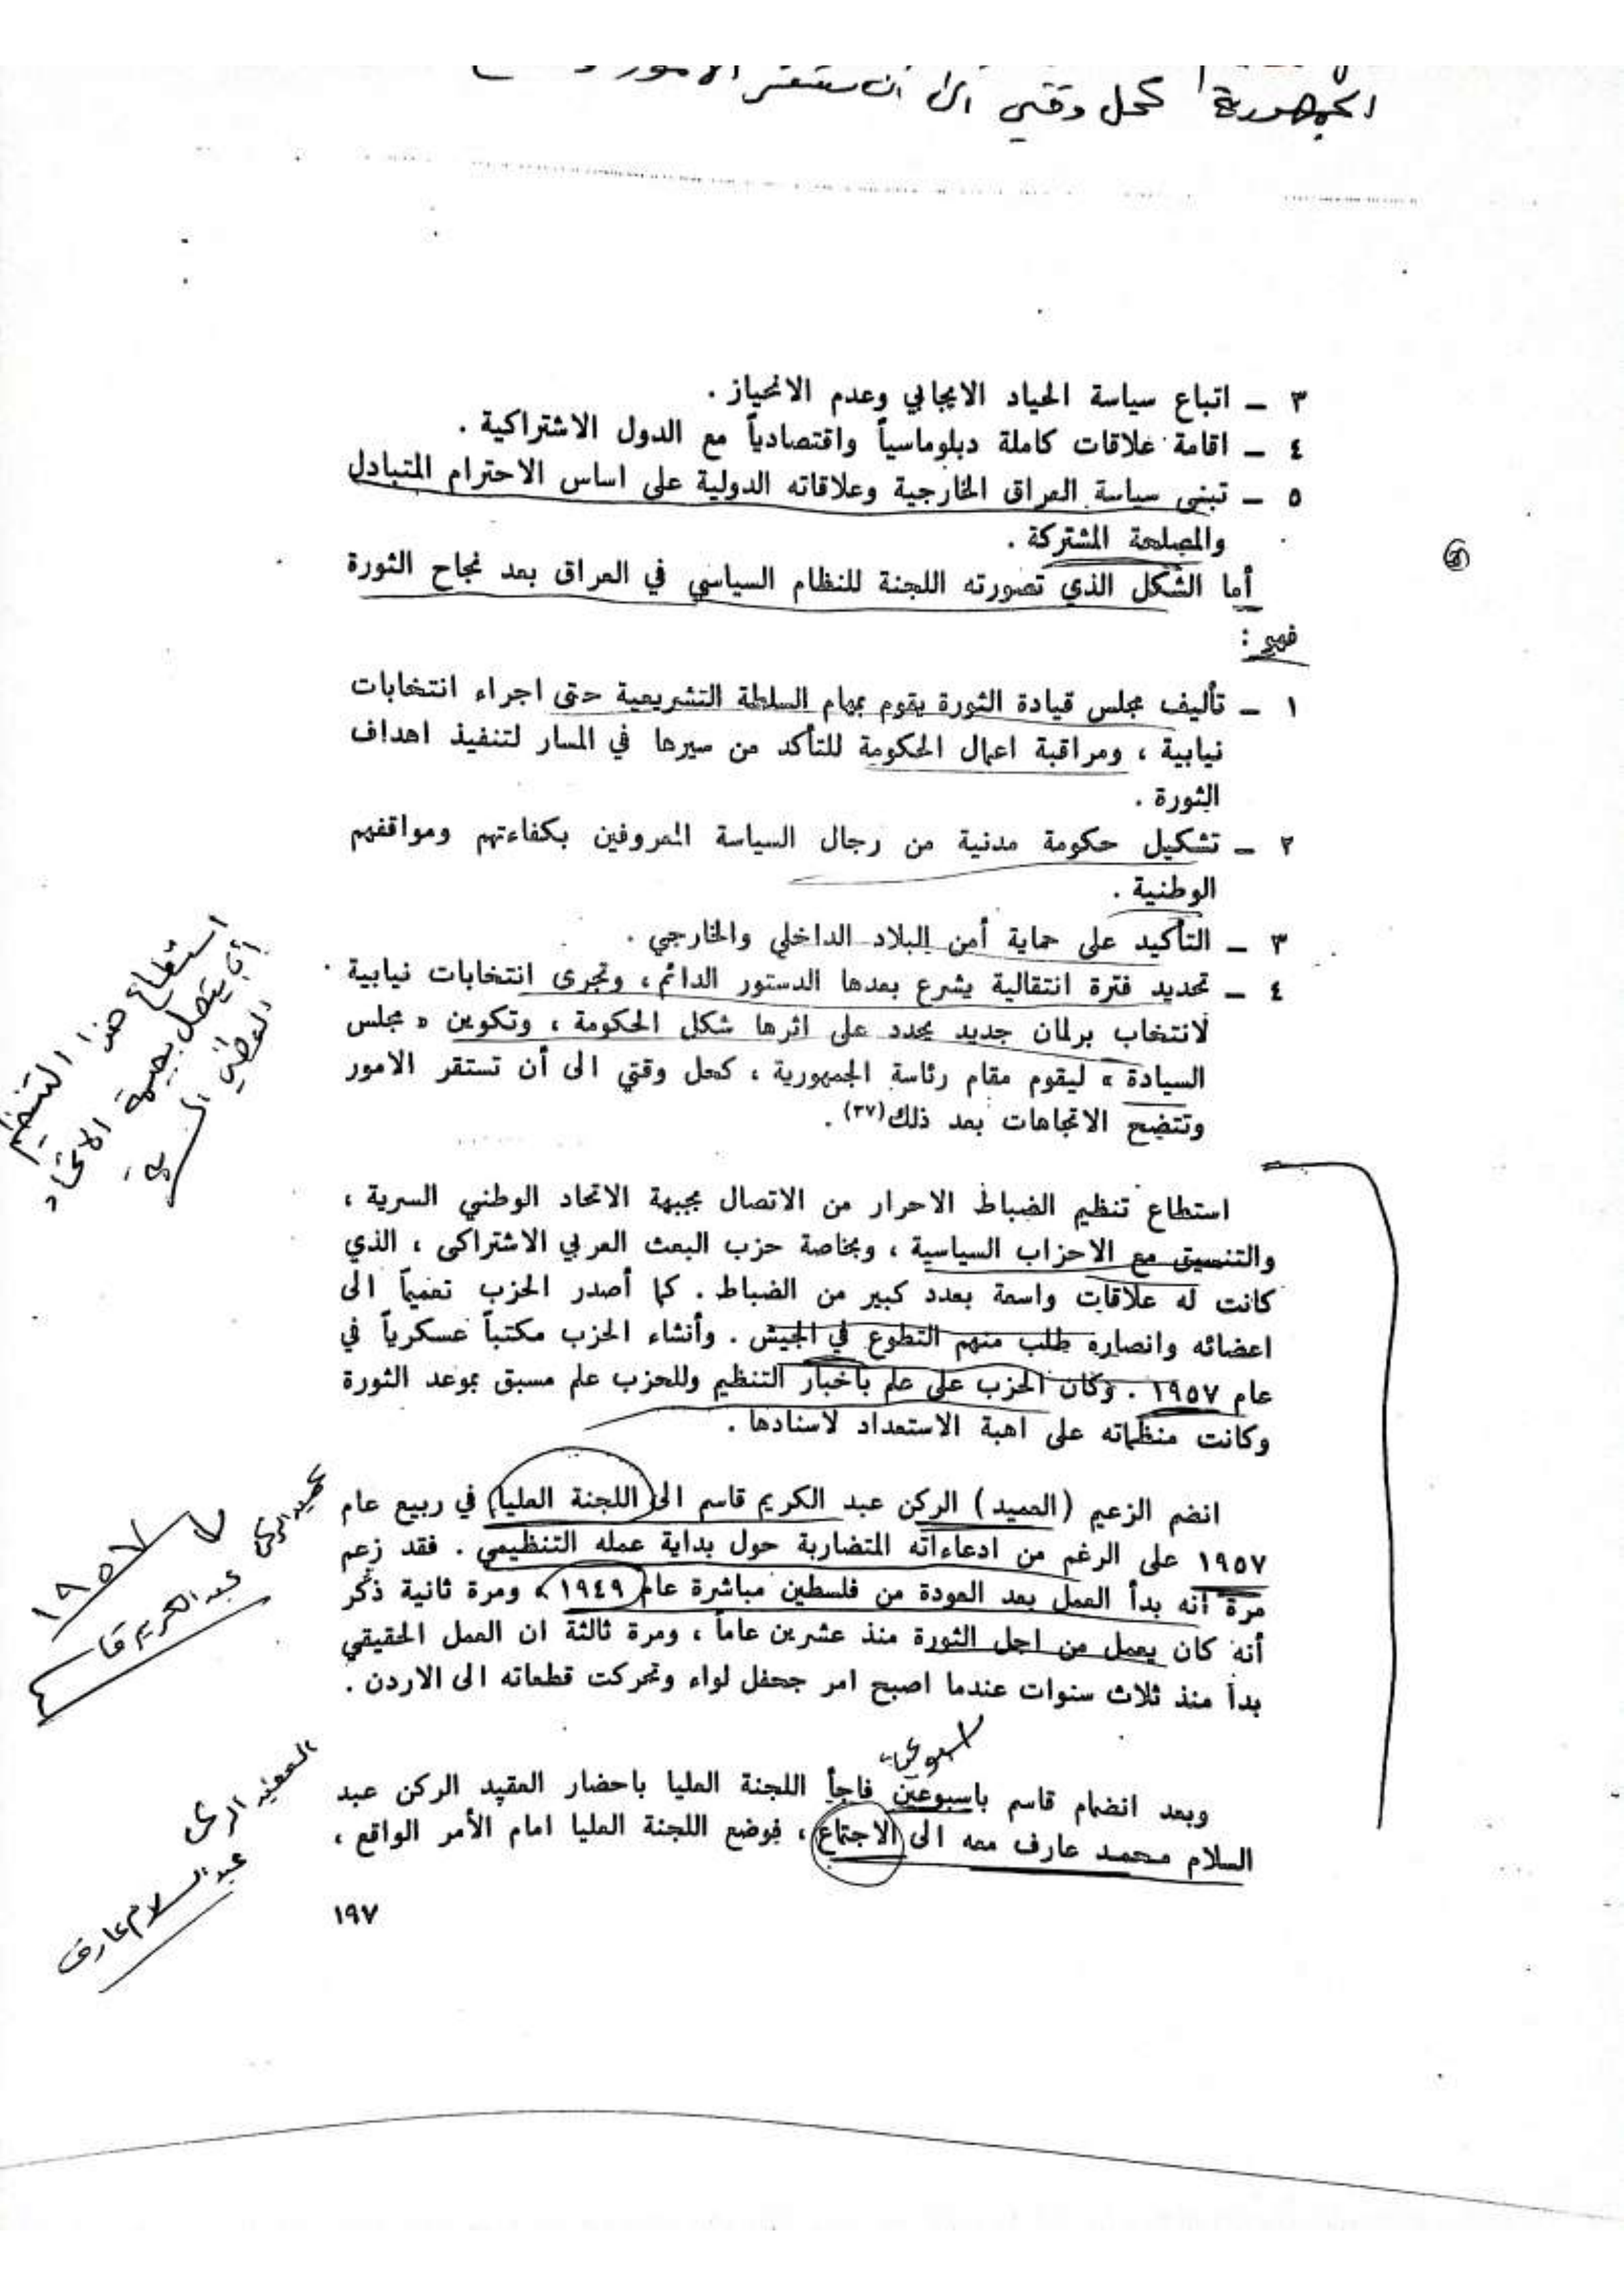 الجمهورية كحل وقتي الى ان تستقر الامور
٣ – اتباع سياسة الحياد الايجابي وعدم الانحياز .
٤ – اقامة علاقات كاملة دبلوماسياً واقتصادياً مع الدول الاشتراكية .
٥ – تبنى سياسة العراق الخارجية وعلاقاته الدولية على اساس الاحترام المتبادل
والمصلحة المشتركة .
أما الشكل الذي تصورته اللجنة للنظام السياسي في العراق بعد نجاح الثورة
فهو :
١ – تأليف مجلس قيادة الثورة يقوم بمهام السلطة التشريعية حتى اجراء انتخابات
نيابية ، ومراقبة اعمال الحكومة للتأكد من سيرها في المسار لتنفيذ اهداف
الثورة .
٢ – تشكيل حكومة مدنية من رجال السياسة المعروفين بكفاءتهم ومواقفهم
الوطنية .
٣ – التأكيد على حماية أمن البلاد الداخلي والخارجي .
٤ – تحديد فترة انتقالية يشرع بعدها الدستور الدائم ، وتجرى انتخابات نيابية
لانتخاب برلمان جديد يحدد على اثرها شكل الحكومة ، وتكوين « مجلس
السيادة » ليقوم مقام رئاسة الجمهورية ، كحل وقتي الى أن تستقر الامور
وتتضح الاتجاهات بعد ذلك(٣٧) .
استطاع هذا التنظيم
أن يتصل بجبهة الاتحاد
الوطني السرية
استطاع تنظيم الضباط الاحرار من الاتصال بجبهة الاتحاد الوطني السرية ،
والتنسيق مع الاحزاب السياسية ، وبخاصة حزب البعث العربي الاشتراكى ، الذي
كانت له علاقات واسعة بعدد كبير من الضباط . كما أصدر الحزب تعميماً الى
اعضائه وانصاره طلب منهم التطوع في الجيش . وأنشاء الحزب مكتباً عسكرياً في
عام ١٩٥٧ . وكان الحزب على علم بأخبار التنظيم وللحزب علم مسبق بموعد الثورة
وكانت منظماته على اهبة الاستعداد لاسنادها .
انضم الزعيم (العميد) الركن عبد الكريم قاسم الى اللجنة العليا في ربيع عام
١٩٥٧ على الرغم من ادعاءاته المتضاربة حول بداية عمله التنظيمي . فقد زعم
مرة أنه بدأ العمل بعد العودة من فلسطين مباشرة عام ١٩٤٩ ، ومرة ثانية ذكر
أنه كان يعمل من اجل الثورة منذ عشرين عاماً ، ومرة ثالثة ان العمل الحقيقي
بدأ منذ ثلاث سنوات عندما اصبح امر جحفل لواء وتحركت قطعاته الى الاردن .
عبد الكريم قا
١٩٥٧
وبعد انضمام قاسم باسبوعين فاجأ اللجنة العليا باحضار العقيد الركن عبد
السلام محمد عارف معه الى الاجتماع ، فوضع اللجنة العليا امام الأمر الواقع ،
العقيد الركن
عبد السلام عارف
١٩٧